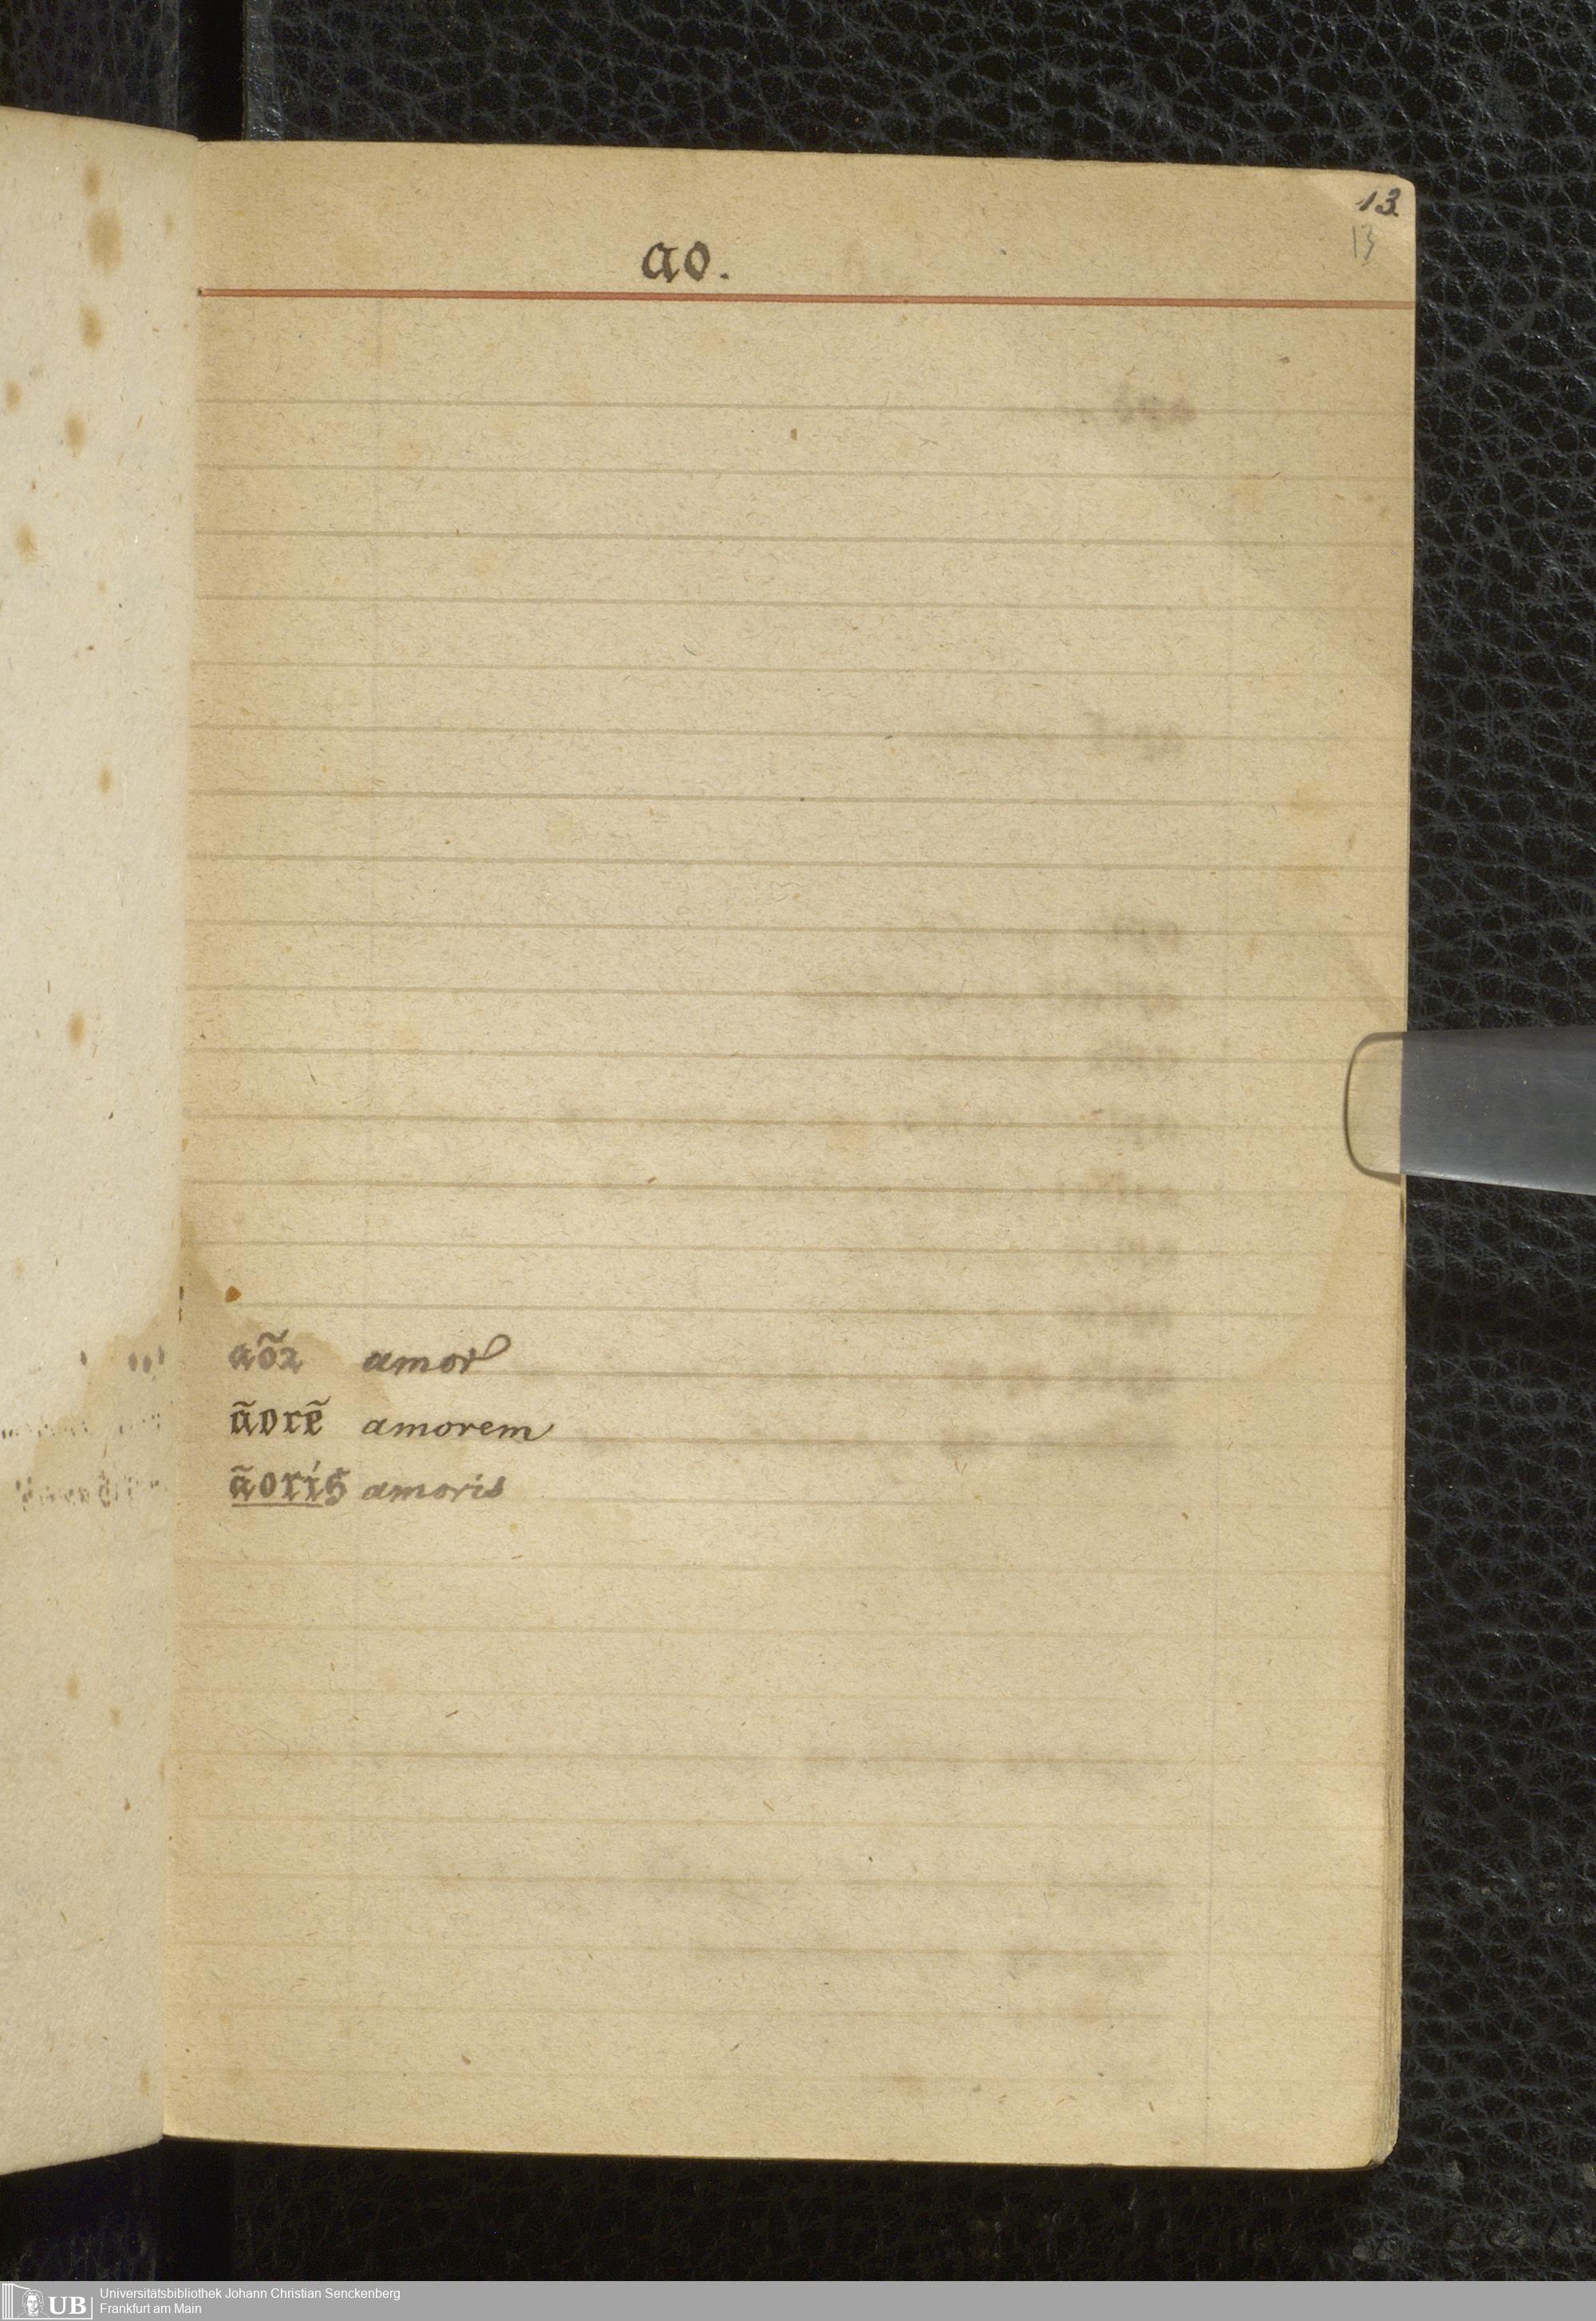 13.
13
ao.
aõꝛ amor
ãorẽ amorem
ãoris amoris
UB
Universitätsbibliothek Johann Christian Senckenberg
Frankfurt am Main